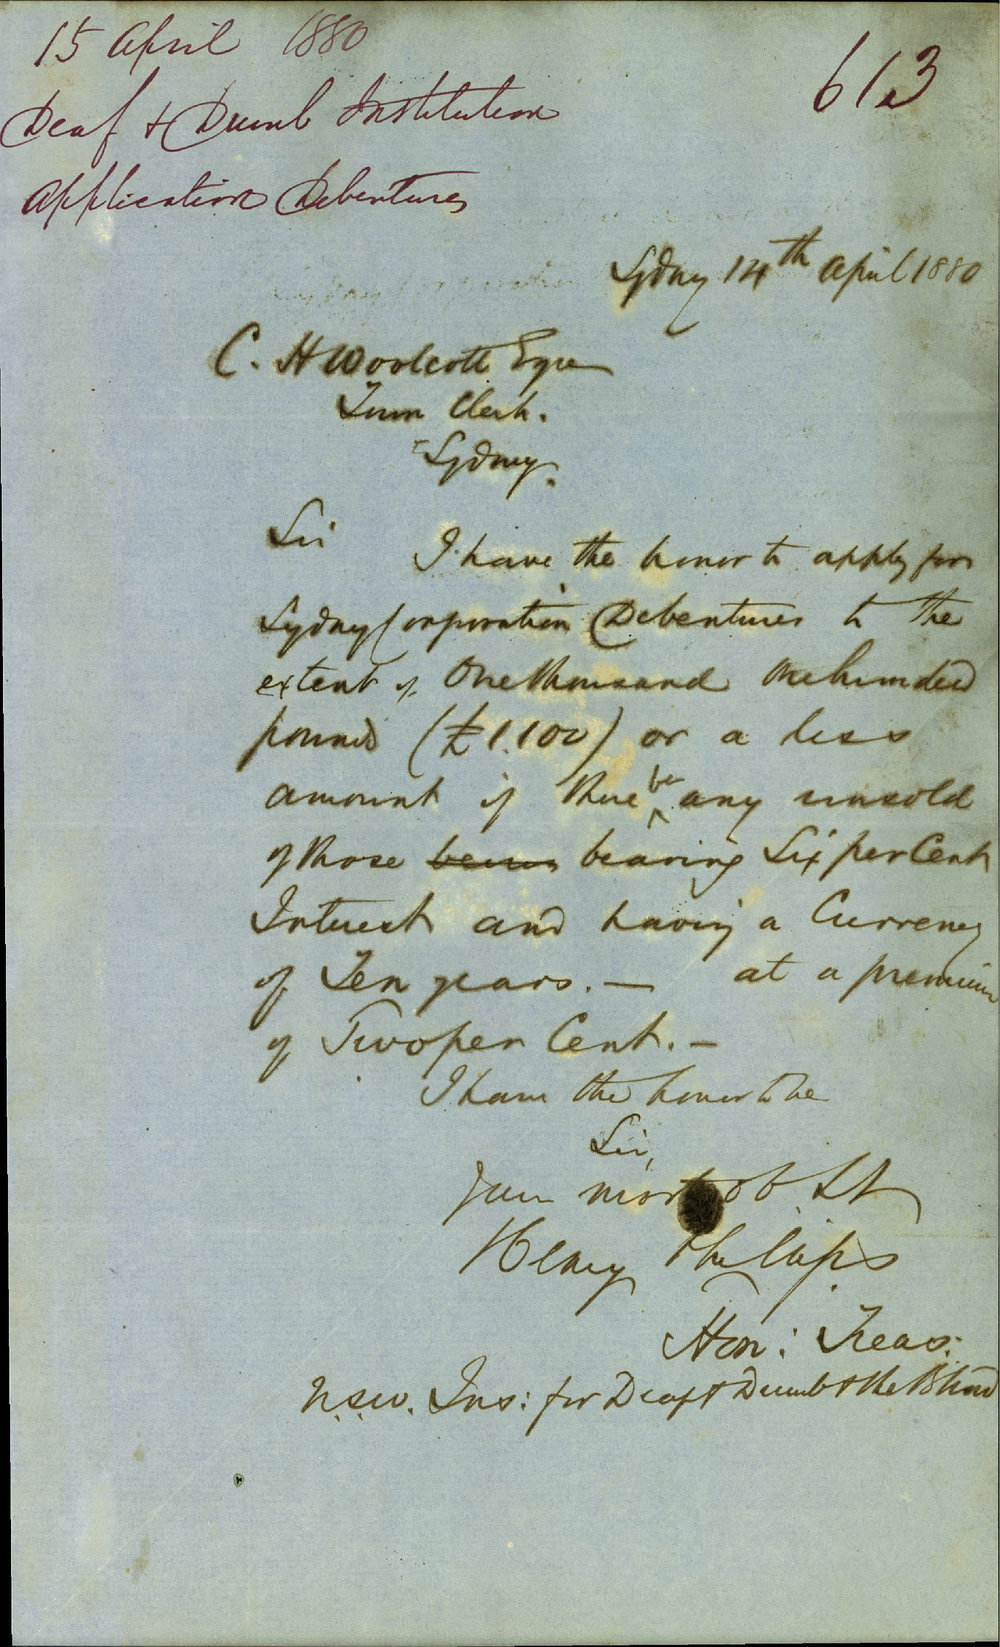 15 April 1880
613
Deaf & Dumb Institution
Application Debentures
Sydney 14th April 1880
C. H Woolcott Esqre
Town Clerk.
Sydney.
Sir I have the honor to apply for
Sydney Corporation Debentures to the
extent of One thousand one hundred
pounds (£1.100) or a less
amount if there be any unsold
of those bearing Six per Cent
Interest and having a Currency
of Ten years. — at a premium
of Two per Cent. —
I have the honor to be
Sir,
Your most ob St
Henry Phillips
Hon: Treas:
N.S.W. Ins: for Deaf & Dumb & the Blind